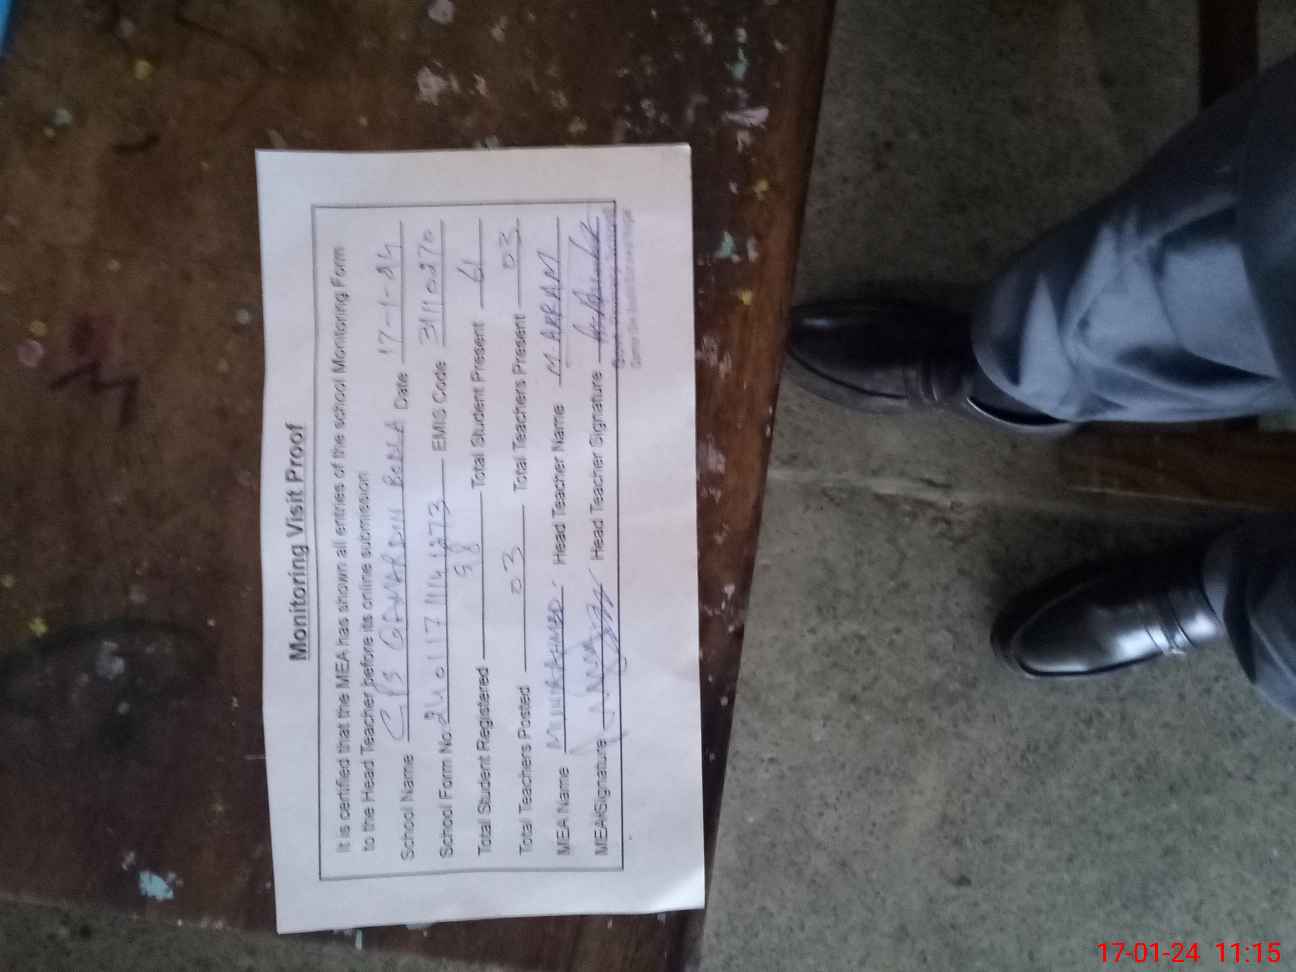 Monitoring Visit Proof
It is certified that the MEA has shown all entries of the school Monitoring Form
to the Head Teacher before its online submission
School Name GPS QAMARDIN BODLA Date 17-1-24
School Form No. EMIS Code 31110270
Total Student Registered 98 Total Student Present 61
Total Teachers Posted 03 Total Teachers Present 03
MEA Name Head Teacher Name M. AKRAM
MEA Signature Head Teacher Signature
17-01-24 11:15